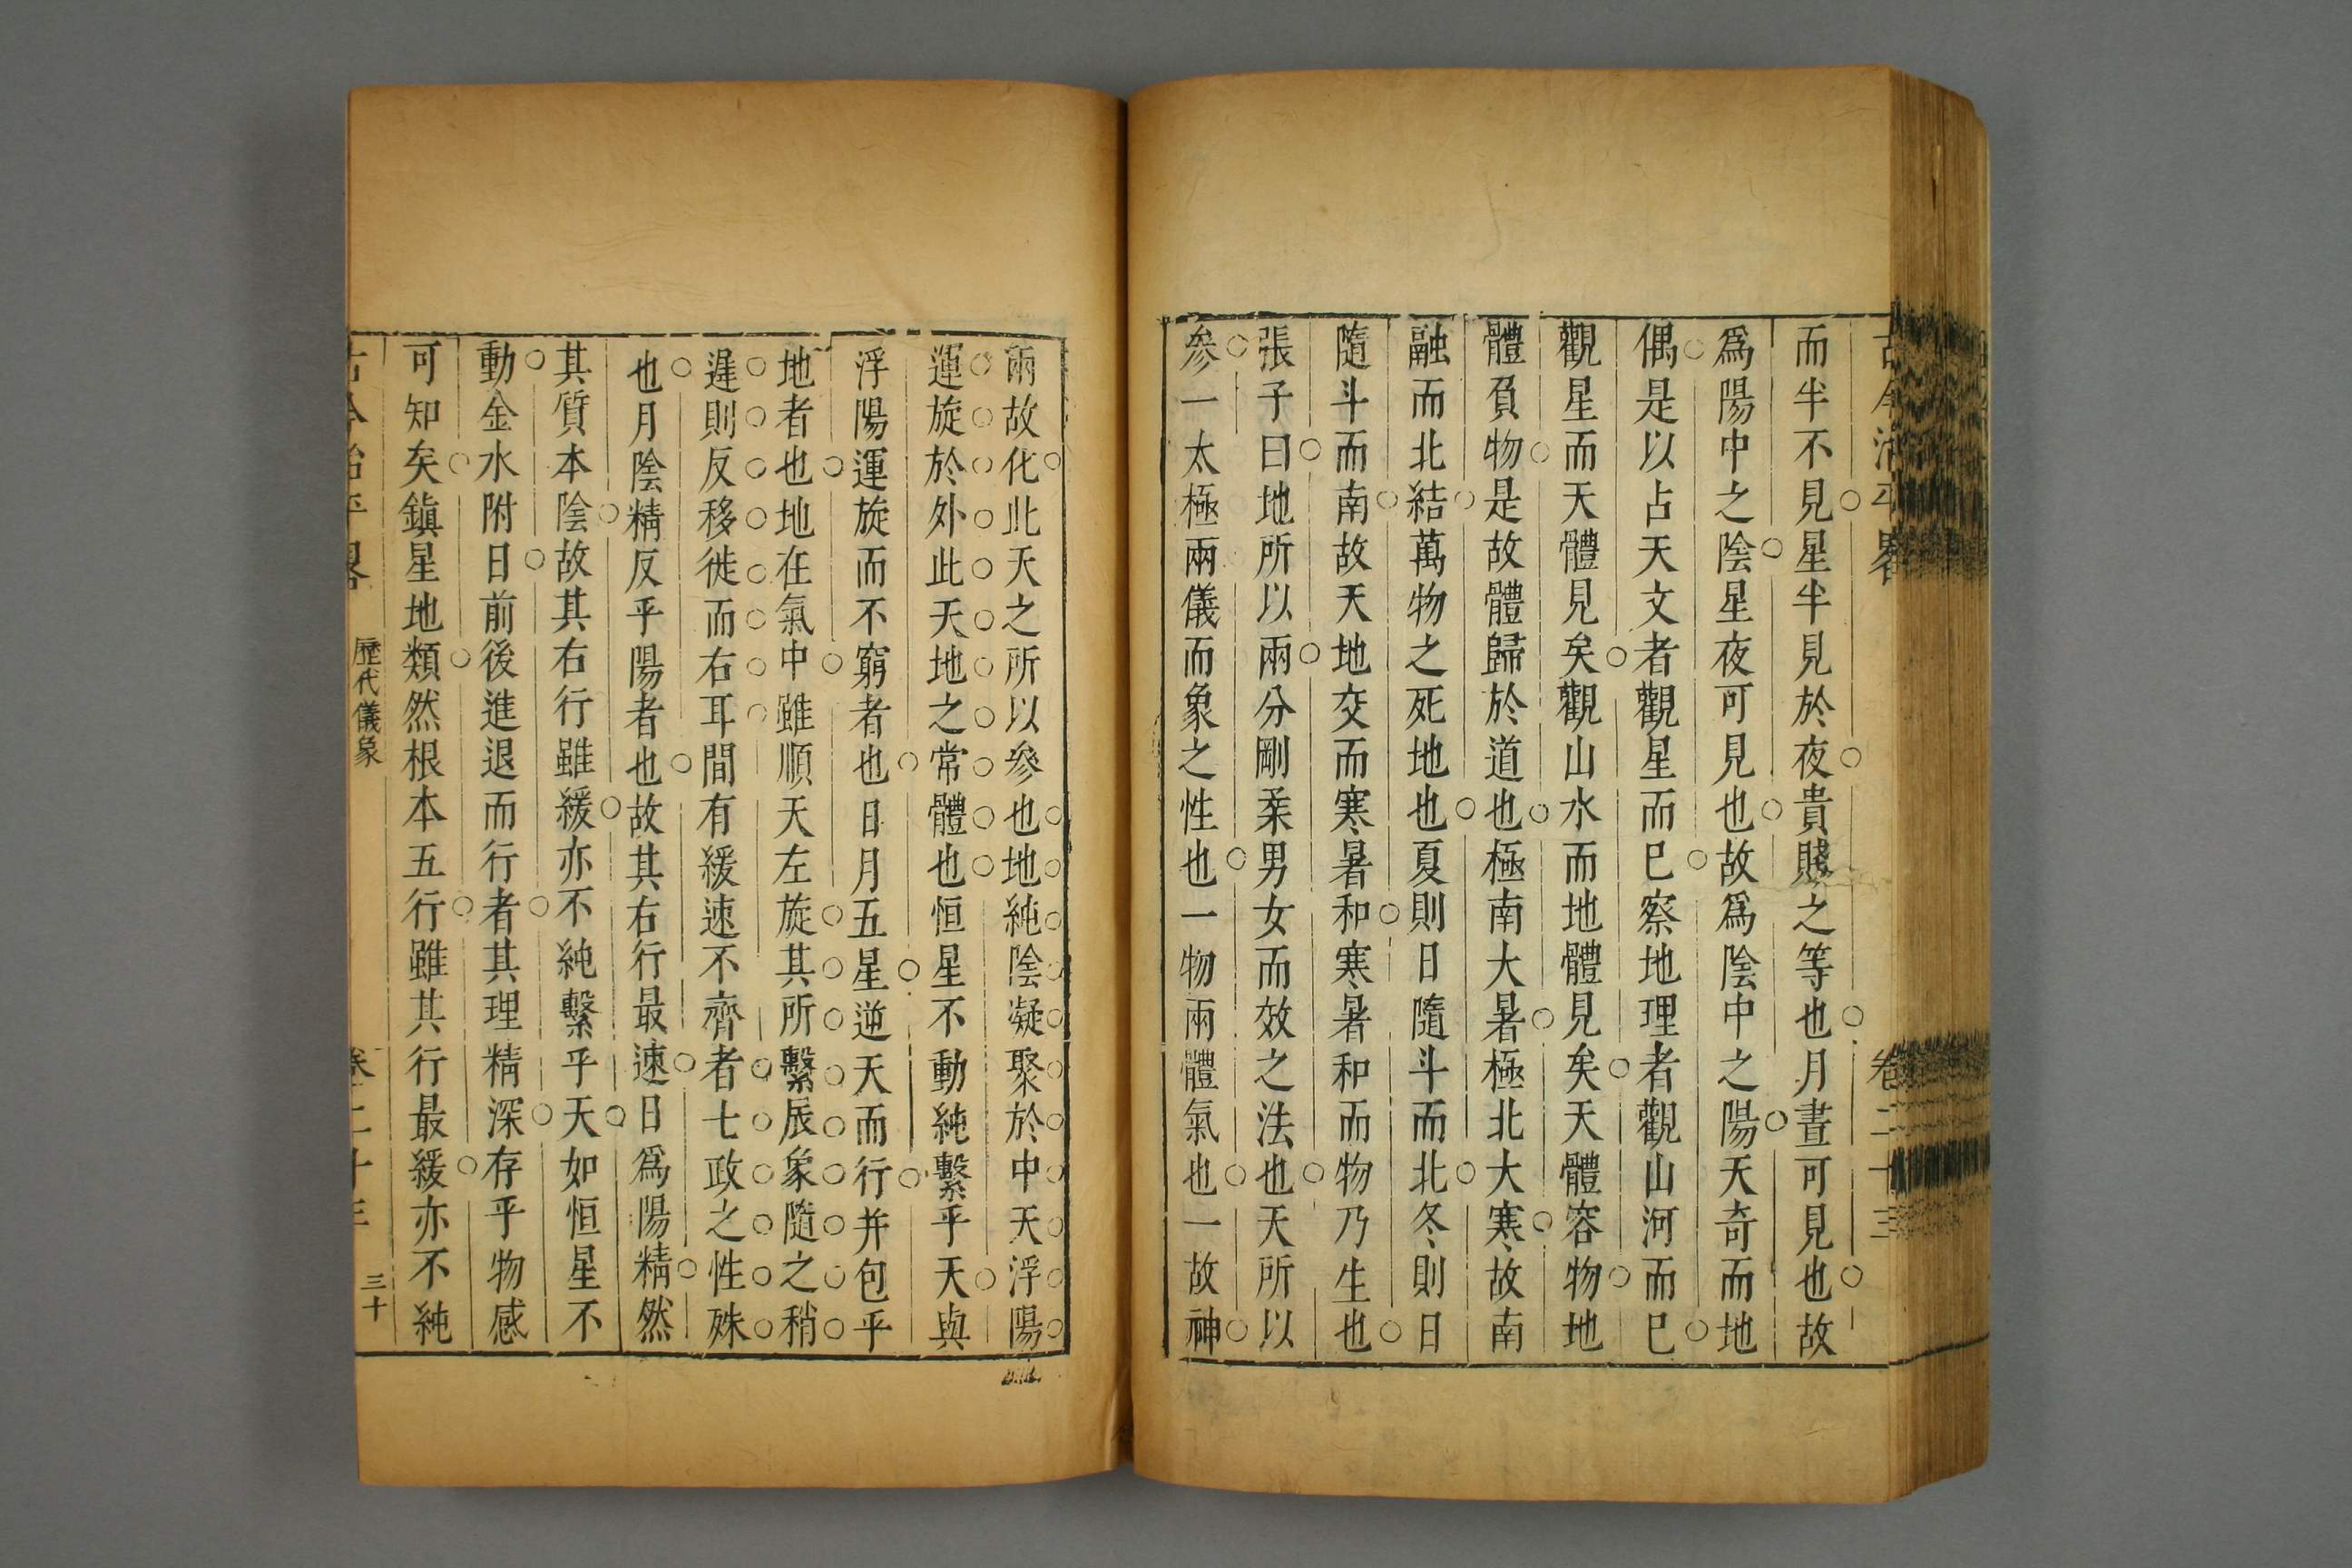 古今治平畧
卷二十三
而半不見星半見於夜貴賤之等也月晝可見也故
爲陽中之陰星夜可見也故爲陰中之陽天奇而地
偶是以占天文者觀星而已察地理者觀山河而已
觀星而天體見矣觀山水而地體見矣天體容物地
體負物是故體歸於道也極南大暑極北大寒故南
融而北結萬物之死地也夏則日隨斗而北冬則日
隨斗而南故天地交而寒暑和寒暑和而物乃生也
張子曰地所以兩分剛柔男女而效之法也天所以
參一太極兩儀而象之性也一物兩體氣也一故神
兩故化此天之所以參也地純陰凝聚於中天浮陽
運旋於外此天地之常體也恒星不動純繫乎天與
浮陽運旋而不窮者也日月五星逆天而行并包乎
地者也地在氣中雖順天左旋其所繫辰象隨之稍
遲則反移徙而右耳間有緩速不齊者七政之性殊
也月陰精反乎陽者也故其右行最速日爲陽精然
其質本陰故其右行雖緩亦不純繫乎天如恒星不
動金水附日前後進退而行者其理精深存乎物感
可知矣鎮星地類然根本五行雖其行最緩亦不純
古今治平畧
歷代儀象
卷二十三
三十